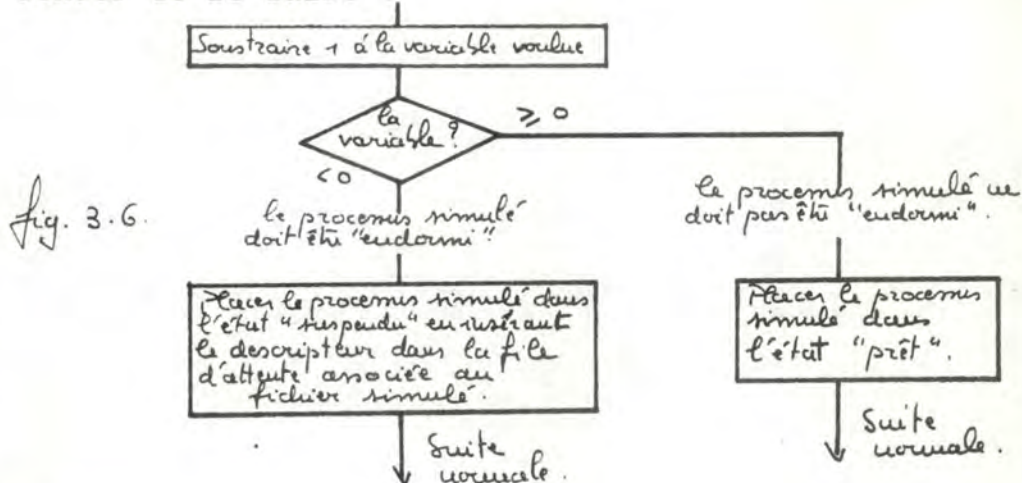 Soustraire 1 à la variable voulue
la
variable ?
≥ 0
< 0
fig. 3.6.
le processus simulé
doit être "endormi".
le processus simulé ne
doit pas être "endormi".
Placer le processus simulé dans
l'état "suspendu" en insérant
le descripteur dans la file
d'attente associée au
fichier simulé.
Placer le processus
simulé dans
l'état "prêt".
Suite
normale.
Suite
normale.